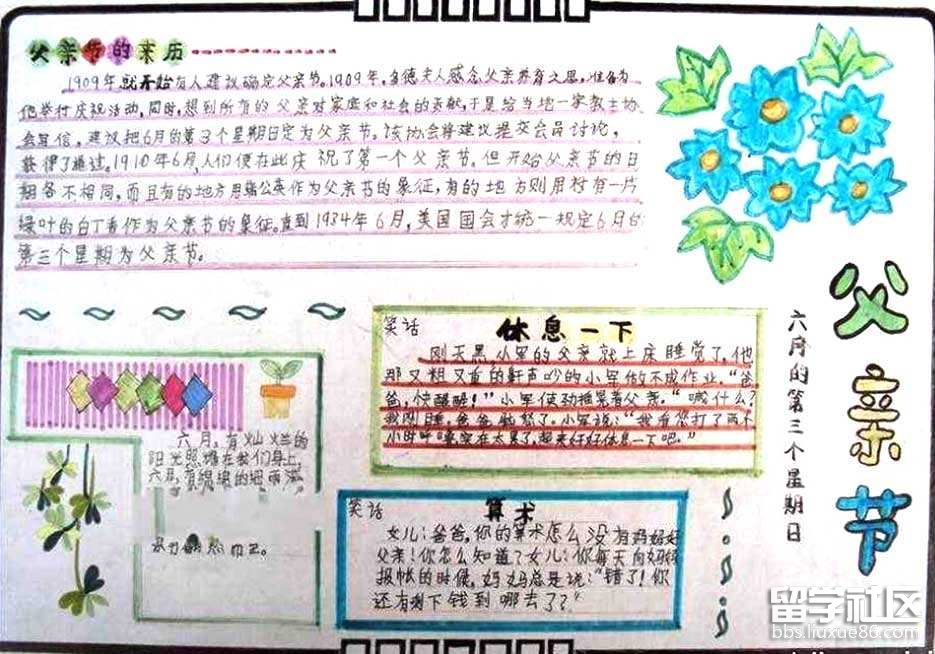 父亲节的来历
1909年就开始有人建议确定父亲节。1909年,多德夫人感念父亲养育之恩,准备为
他举行庆祝活动,同时,想到所有的父亲对家庭和社会的贡献,于是给当地一家教士协
会写信,建议把6月的第3个星期日定为父亲节。该协会将建议提交会员讨论,
获得了通过。1910年6月,人们便在此庆祝了第一个父亲节。但开始父亲节的日
期各不相同,而且有的地方用蒲公英作为父亲节的象征,有的地方则用衬有一片
绿叶的白丁香作为父亲节的象征。直到1934年6月,美国国会才统一规定6月的
第三个星期为父亲节。
父亲节
六月的第三个星期日
笑话
休息一下
刚天黑,小军的父亲就上床睡觉了,他
那又粗又重的鼾声吵的小军做不成作业。“爸
爸,快醒醒!”小军使劲摇晃着父亲。“喊什么?
我刚睡,爸爸
小军说:“我看您打了两个
小时呼噜实在太累了,起来好好休息一下吧。”
六月,有灿烂的
阳光照耀在我们身上,
六月,有绵绵的细雨
笑话
算术
女儿:爸爸,你的算术怎么没有妈妈好
父亲!你怎么知道?女儿:你每天向妈妈
报帐的时候,妈妈总是说:“错了!你
还有剩下钱到哪去了?”
留学社区
bbs.liuxue86.com